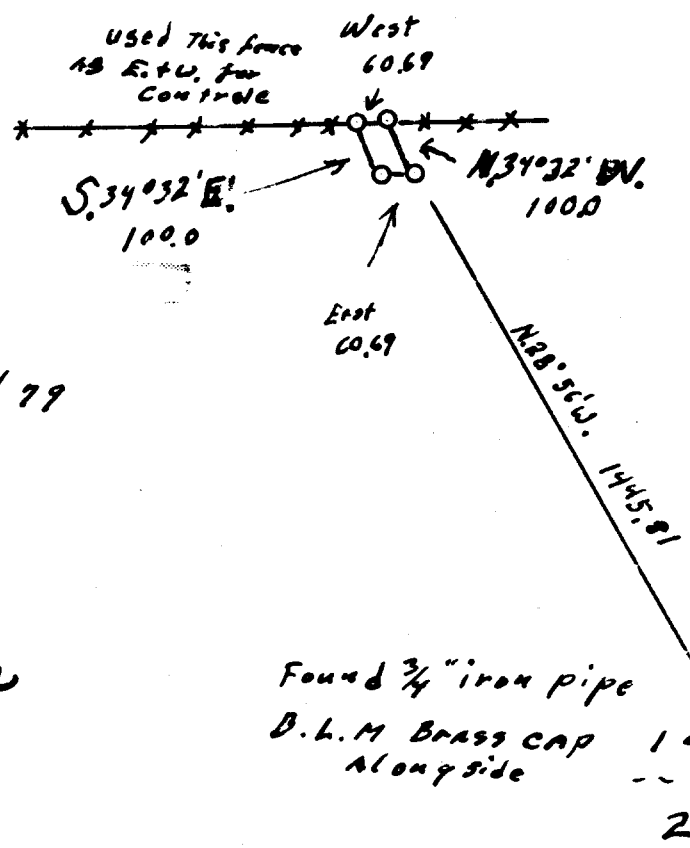 used This fence
AS E.+W. for
Controle
West
60.69
S.34°32'E.
100.0
N.34°32' W.
100.0
East
60.69
79
N.28°56'W. 1445.81
Found 3/4" iron pipe
B.L.M Brass cap
Alongside
1
2